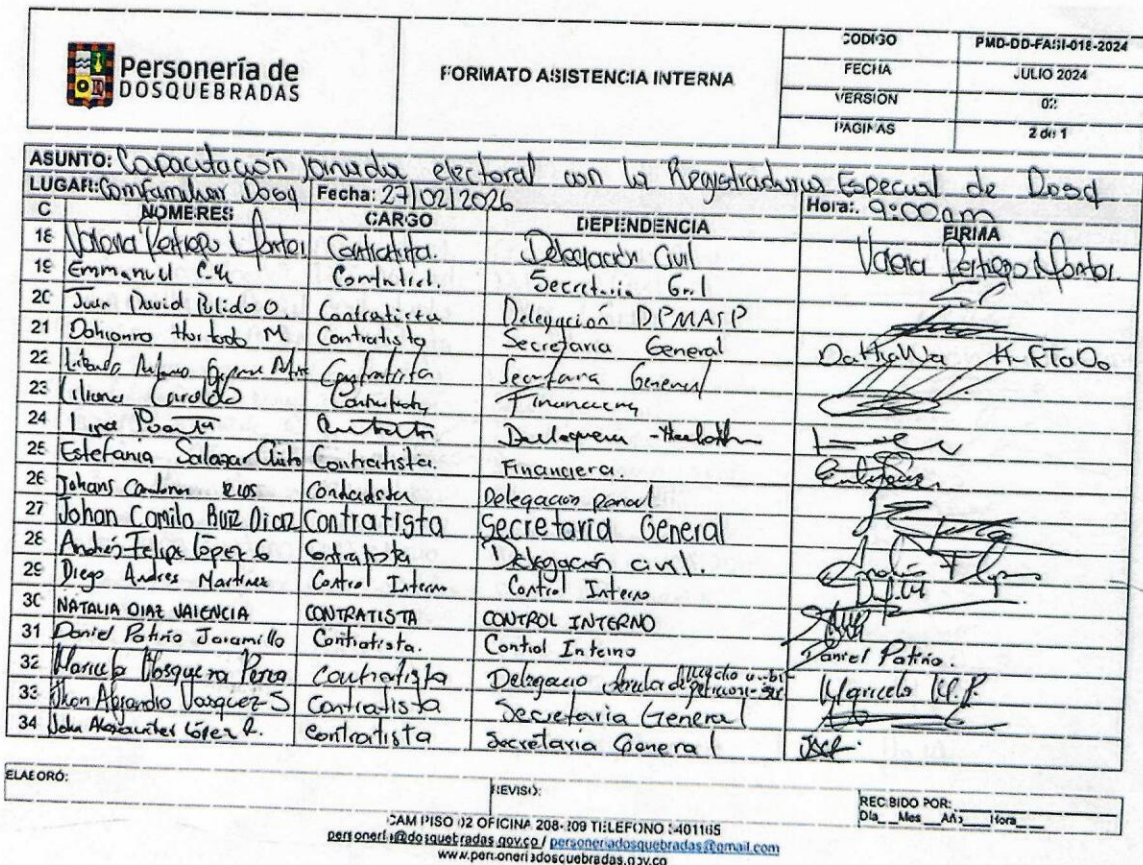 Personería de
DOSQUEBRADAS
FORMATO ASISTENCIA INTERNA
CODIGO PMD-DD-FASI-018-2024
FECHA JULIO 2024
VERSION 02
PAGINAS 2 de 1
ASUNTO: Capacitación jornada electoral con la Registraduria Especial de Dosq
LUGAR: Comfamiliar Dosq Fecha: 27/02/2026 Hora:. 9:00am
C NOMBRES CARGO DEPENDENCIA FIRMA
18 Contratista. Delegación Civil
19 Emmanuel Secretaria
20 Juan David Pulido O Contratista Delegación DPMASP
21 Hurtado M Contratista Secretaria General DaHiaNa HuRTaDo
22 Contratista Secretaria General
23 Liliana Financiera
24 Lina
25 Estefania Salazar Contratista. Financiera.
26 Johans Rios Delegacion penal
27 Johan Camilo Ruiz Diaz Contratista Secretaria General
28 Andrés Felipe López G Contratista Delegación civil.
29 Diego Andres Martinez Control Interno Control Interno
30 NATALIA DIAZ VALENCIA CONTRATISTA CONTROL INTERNO
31 Daniel Patiño Jaramillo Contratista. Control Interno Daniel Patiño.
32 Maricela Mosquera Perea Contratista Maricela M.P.
33 Jhon Alejandro Vasquez S Contratista Secretaria General
34 John Alexander López R. contratista Secretaria General
ELABORÓ: REVISÓ: RECIBIDO POR:
Día__ Mes __ Año___ Hora___
CAM PISO 02 OFICINA 208-209 TELEFONO 3401165
personeria@dosquebradas.gov.co / personeriadosquebradas@gmail.com
www.personeriadosquebradas.gov.co